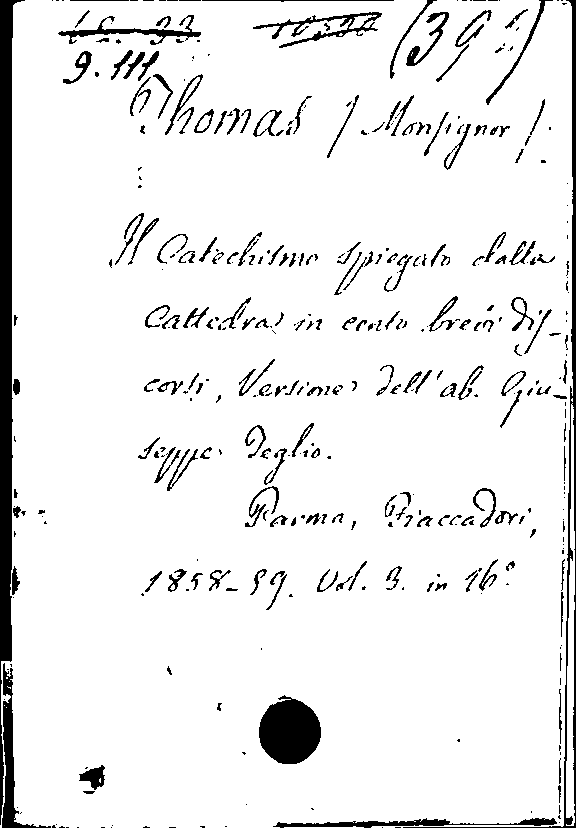 9. 111
Thomas / Monsignor /.
Il Catechismo spiegato dalla
Cattedra in cento brevi dis-
corsi, Versione dell' ab. Giu-
seppe Teglio.
Parma, Fiaccadori,
1858-59. Vol. 3. in 16°